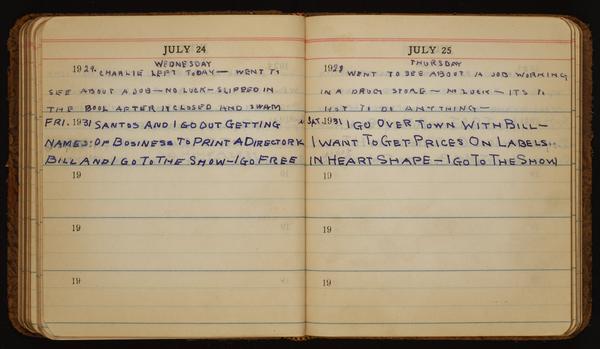 JULY 24
WEDNESDAY
1929. CHARLIE LEFT TODAY — WENT TO
SEE ABOUT A JOB — NO LUCK — SLIPPED IN
THE BOOL AFTER IT CLOSED AND SWAM
FRI. 1931 SANTOS AND I GO OUT GETTING
NAMES: OF BOSINESS TO PRINT A DIRECTORY
BILL AND I GO TO THE SHOW — I GO FREE
19
19
19
JULY 25
THURSDAY
1929 WENT TO SEE ABOUT A JOB WORKING
IN A DRUG STORE — NO LUCK — IT'S TO
HOT TO DO ANYTHING —
SAT. 1931 I GO OVER TOWN WITH BILL —
I WANT TO GET PRICES ON LABELS
IN HEART SHAPE — I GO TO THE SHOW
19
19
19